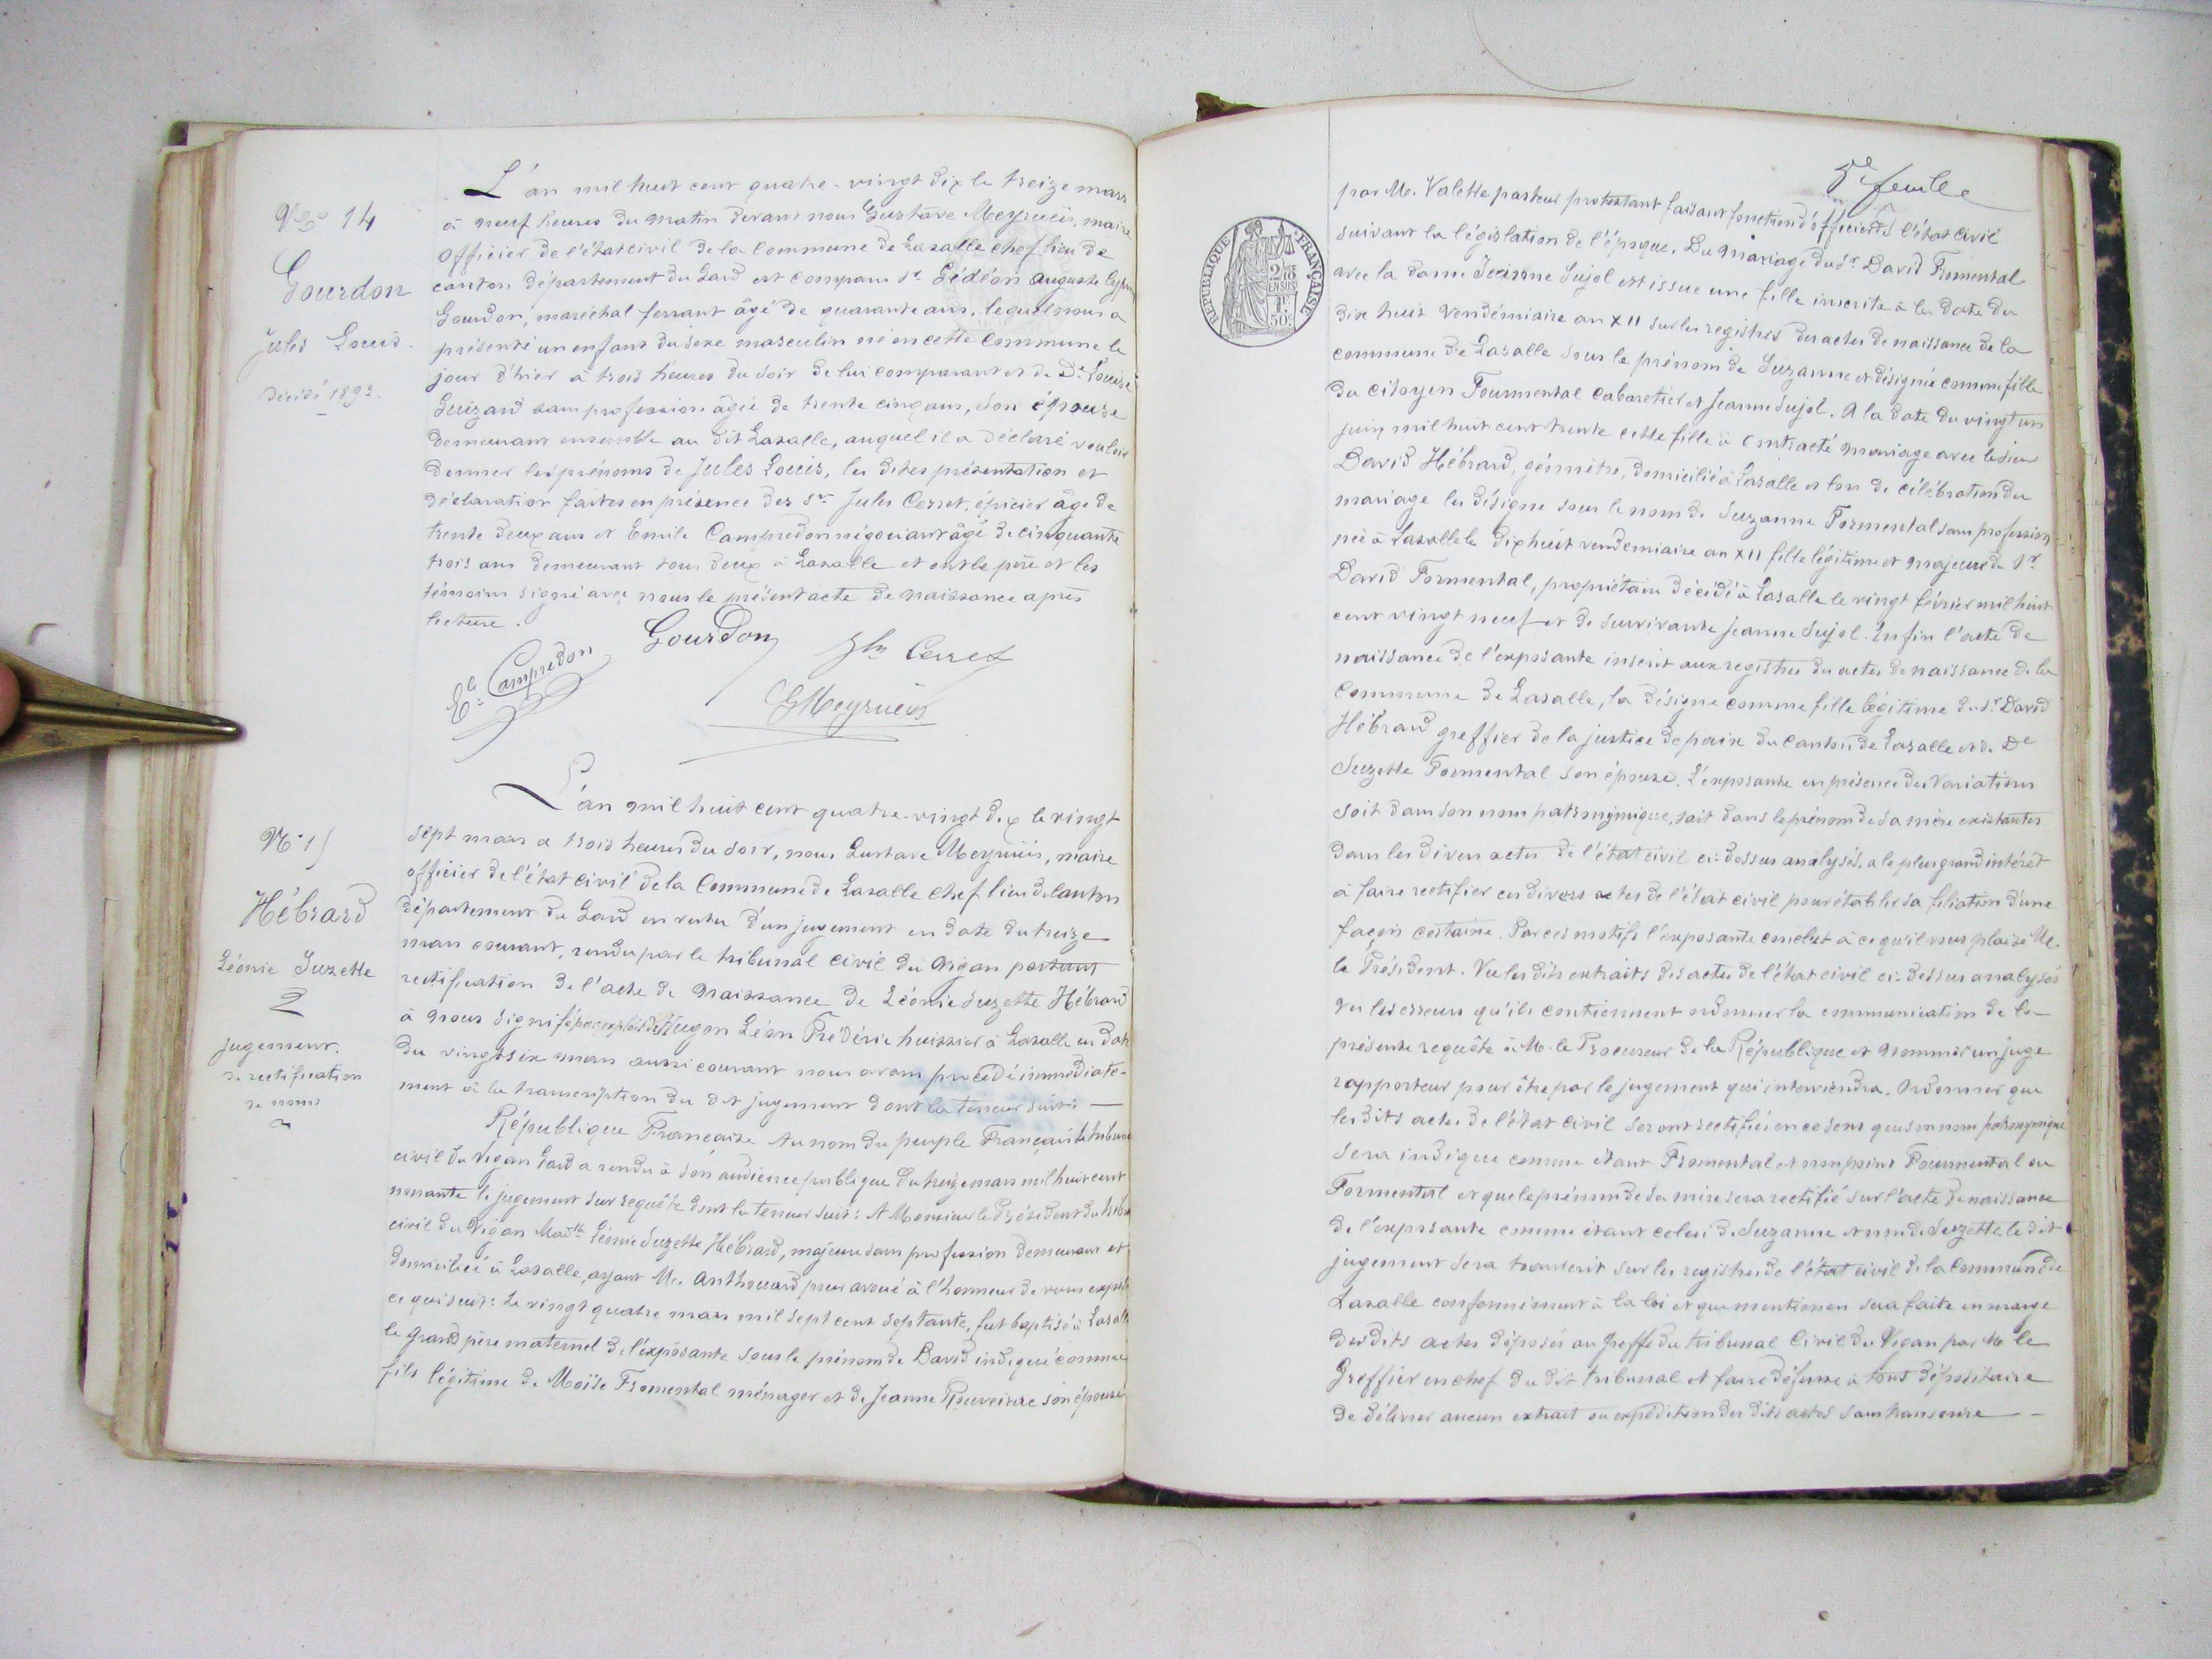 N° 14
Gourdon
Jules Louis.
décédé 1892.
L'an mil huit cent quatre-vingt dix le treize mars
à neuf heures du matin devant nous Gustave Meyrueis, maire
officier de l'état civil de la Commune de Lasalle chef lieu de
canton département du Gard est comparu Sr Gédéon Auguste
Gourdon, maréchal ferrant âgé de quarante ans, lequel nous a
présenté un enfant du sexe masculin né en cette commune le
jour d'hier à trois heures du soir de lui comparant et de De Louise
Guizard sans profession âgée de trente cinq ans, son épouse
demeurant ensemble au dit Lasalle, auquel il a déclaré vouloir
donner les prénoms de Jules Louis, les dites présentation et
déclaration faites en présence des Srs Jules Cerret, épicier âgé de
trente deux ans et Emile Campredon négociant âgé de cinquante
trois ans demeurant tous deux à Lasalle et ont le père et les
témoins signé avec nous le présent acte de naissance après
lecture.
Ele Campredon
Gourdon
Jls Cerret
GMeyrueis
N° 15
Hébrard
Léonie Suzette
2
jugement
de rectification
de noms
L'an mil huit cent quatre-vingt dix le vingt
sept mars à trois heures du soir, nous Gustave Meyrueis, maire
officier de l'état civil de la Commune de Lasalle chef lieu de canton
département du Gard en vertu d'un jugement en date du treize
mars courant, rendu par le tribunal civil du Vigan portant
rectification de l'acte de naissance de Léonie Suzette Hébrard
à nous signifié par exploit de Hugon Léon Frédéric huissier à Lasalle en date
du vingt six mars aussi courant nous avons procédé immédiate-
ment à la transcription du dit jugement dont la teneur suit: —
République Française Au nom du peuple Français le tribunal
civil du Vigan Gard a rendu à son audience publique du treize mars mil huit cent
nonante le jugement sur requête dont la teneur suit: A Monsieur le Président du tribunal
civil du Vigan Madlle Léonie Suzette Hébrard, majeure sans profession demeurant et
domiciliée à Lasalle, ayant Me. Anthouard pour avoué à l'honneur de vous exposer
ce qui suit: Le vingt quatre mars mil sept cent septante, fut baptisé à Lasalle
le grand père maternel de l'exposante sous le prénom de David indiqué comme
fils légitime de Moïse Fromental ménager et de Jeanne Rouveirac son épouse
5e feuille
RÉPUBLIQUE FRANÇAISE
2/10 EN SUS
1F 50c
par M. Valette pasteur protestant faisant fonction d'officier de l'état civil
suivant la législation de l'époque. Du mariage du Sr David Fromental
avec la dame Jeanne Sujol est issue une fille inscrite à la date du
dix huit Vendémiaire an XII sur les registres des actes de naissance de la
commune de Lasalle sous le prénom de Suzanne et désignée comme fille
du citoyen Fourmental cabaretier et Jeanne Sujol. A la date du vingt un
juin mil huit cent trente cette fille a contracté mariage avec le sieur
David Hébrard, géomètre, domicilié à Lasalle et lors de célébration du
mariage les désigne sous le nom de Suzanne Formental sans profession
née à Lasalle le dix huit vendemiaire an XII fille légitime et majeure de Sr
David Formental, propriétaire décédé à Lasalle le vingt février mil huit
cent vingt neuf et de survivante Jeanne Sujol. Enfin l'acte de
naissance de l'exposante inscrit aux registres des actes de naissance de la
Commune de Lasalle, la désigne comme fille légitime du Sr David
Hébrard greffier de la justice de paix du Canton de Lasalle et de De
Suzette Formental son épouse. L'exposante en présence des Variations
soit dans son nom patronymique, soit dans le prénom de sa mère existantes
dans les divers actes de l'état civil ci-dessus analysés, a le plus grand intérêt
à faire rectifier ces divers actes de l'état civil pour établir sa filiation d'une
façon certaine. Par ces motifs l'exposante conclut à ce qu'il vous plaise M.
le Président. Vu les dits extraits des actes de l'état civil ci-dessus analysés
vu les erreurs qu'ils contiennent ordonner la communication de la
présente requête à M. le Procureur de la République et nommer un juge
rapporteur pour être par le jugement qui interviendra. Ordonner que
les dits actes de l'état civil seront rectifiés en ce sens que son nom patronymique
sera indiqué comme étant Fromental et non point Fourmental ou
Formental et que le prénom de sa mère sera rectifié sur l'acte de naissance
de l'exposante comme étant celui de Suzanne et non de Suzette le dit
jugement sera transcrit sur les registres de l'état civil de la Commune de
Lasalle conformément à la loi et que mention en sera faite en marge
desdits actes déposés au greffe du tribunal Civil du Vigan par M le
Greffier en chef du dit tribunal et faire défense à tout dépositaire
de délivrer aucun extrait ou expédition des dits actes sans transcrire —